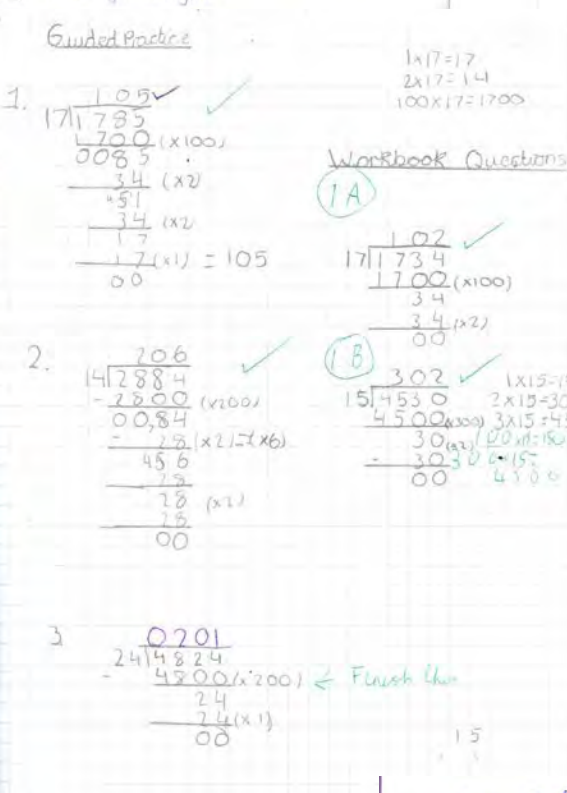 Guided Practice
1×17=17
2×17=
100×17=1700
1.
105
17 1785
1700 (×100)
0085
34 (×2)
51
34 (×2)
17
17 (×1) = 105
00
Workbook Questions
1A
102
17 1734
1700 (×100)
34
34 (×2)
00
2.
206
14 2884
- 2800 (×200)
00,84
- 28 (×2)
28
28 (×2)
28
00
1B
302
15 4530
4500 (×300)
30 (×2)
- 30
00
1×15=
2×15=30
3×15=45
3
0201
24 4824
- 4800 (×200) ← Finish this
24
24 (×1)
00
15